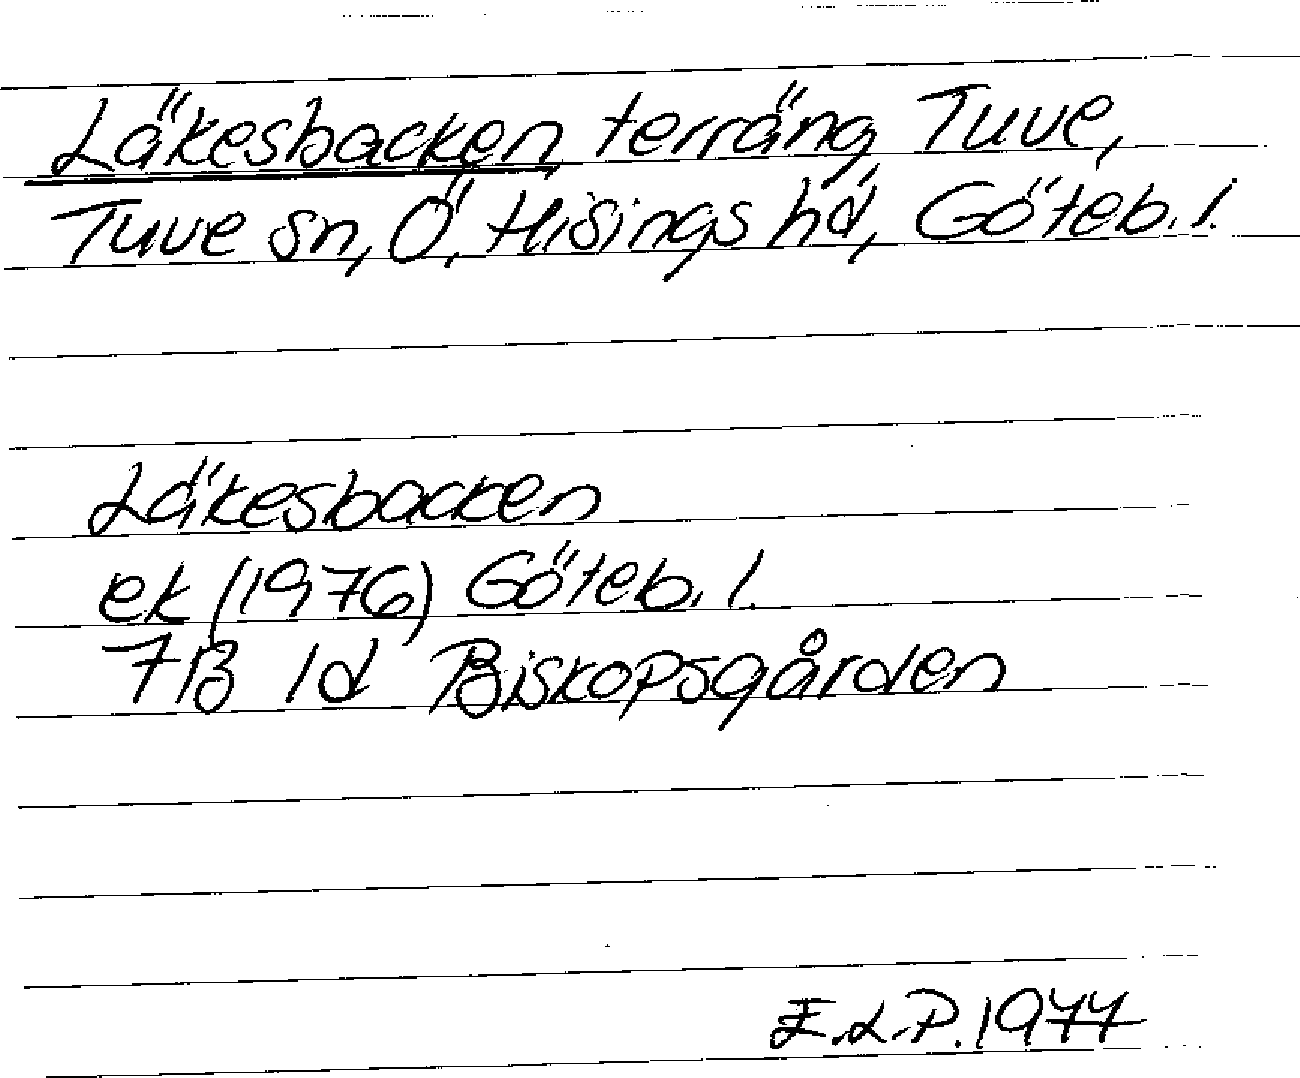 Läkesbacken, terräng, Tuve,
Tuve sn, Ö. Hisings hd, Göteb. l.
Läkesbacken
ek (1976) Göteb. l.
7B 1d Biskopsgården
E.L.P. 1977